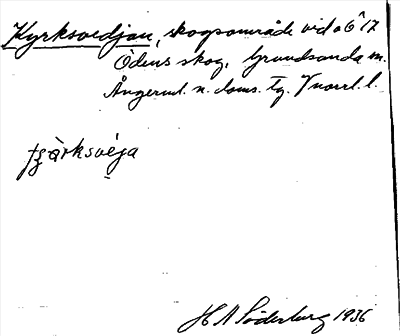 Kyrksvedjan, skogsområde vid a6^17
Ödens skog, Grundsunda sn.
Ångerml. n. doms. tg. Vnorrl. l.
tʂärksvéja
H A Söderberg 1936